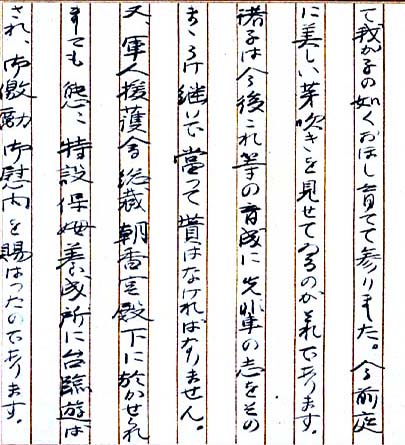 て我が子の如くおぼし育てて参りました。今前庭
に美しい芽吹きを見せてゐるのがそれであります。
諸子は今後これ等の育成に先輩の志をその
まゝうけ継いで當つて貰はなければなりません。
又軍人援護会総裁朝香宮殿下に於かせられ
ましても態々特設保姆養成所に台臨遊ば
され、御激励御慰問を賜はつたのであります。